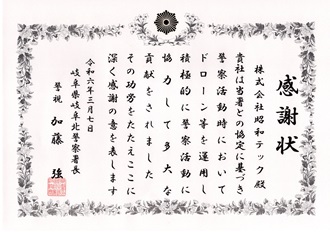 感謝状
株式会社昭和テック殿
貴社は当署との協定に基づき
警察活動時において
ドローン等を運用し
積極的に警察活動に
協力して多大な
貢献をされました
その功労をたたえここに
深く感謝の意を表します
令和六年三月七日
岐阜県岐阜北警察署長
警視 加藤 強